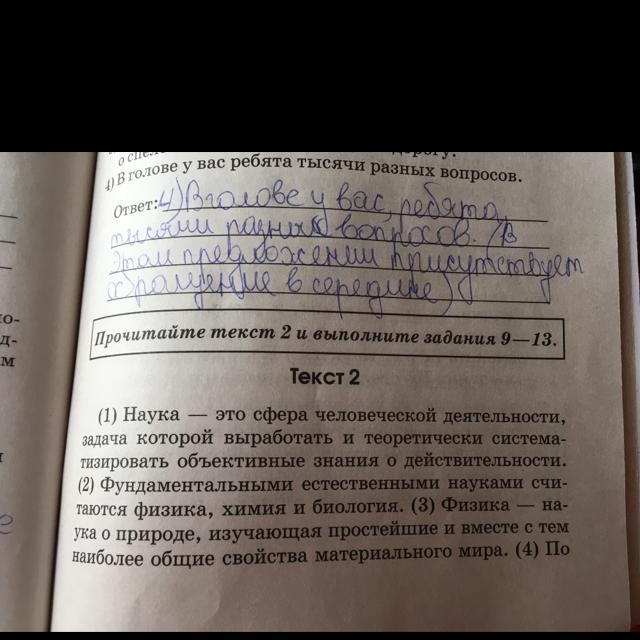 дорогу.
4) В голове у вас ребята тысячи разных вопросов.
Ответ: 4) В голове у вас, ребята,
тысячи разных вопросов. (В
этом предложении присутствует
обращение в середине)
Прочитайте текст 2 и выполните задания 9—13.
Текст 2
(1) Наука — это сфера человеческой деятельности,
задача которой выработать и теоретически система-
тизировать объективные знания о действительности.
(2) Фундаментальными естественными науками счи-
таются физика, химия и биология. (3) Физика — на-
ука о природе, изучающая простейшие и вместе с тем
наиболее общие свойства материального мира. (4) По